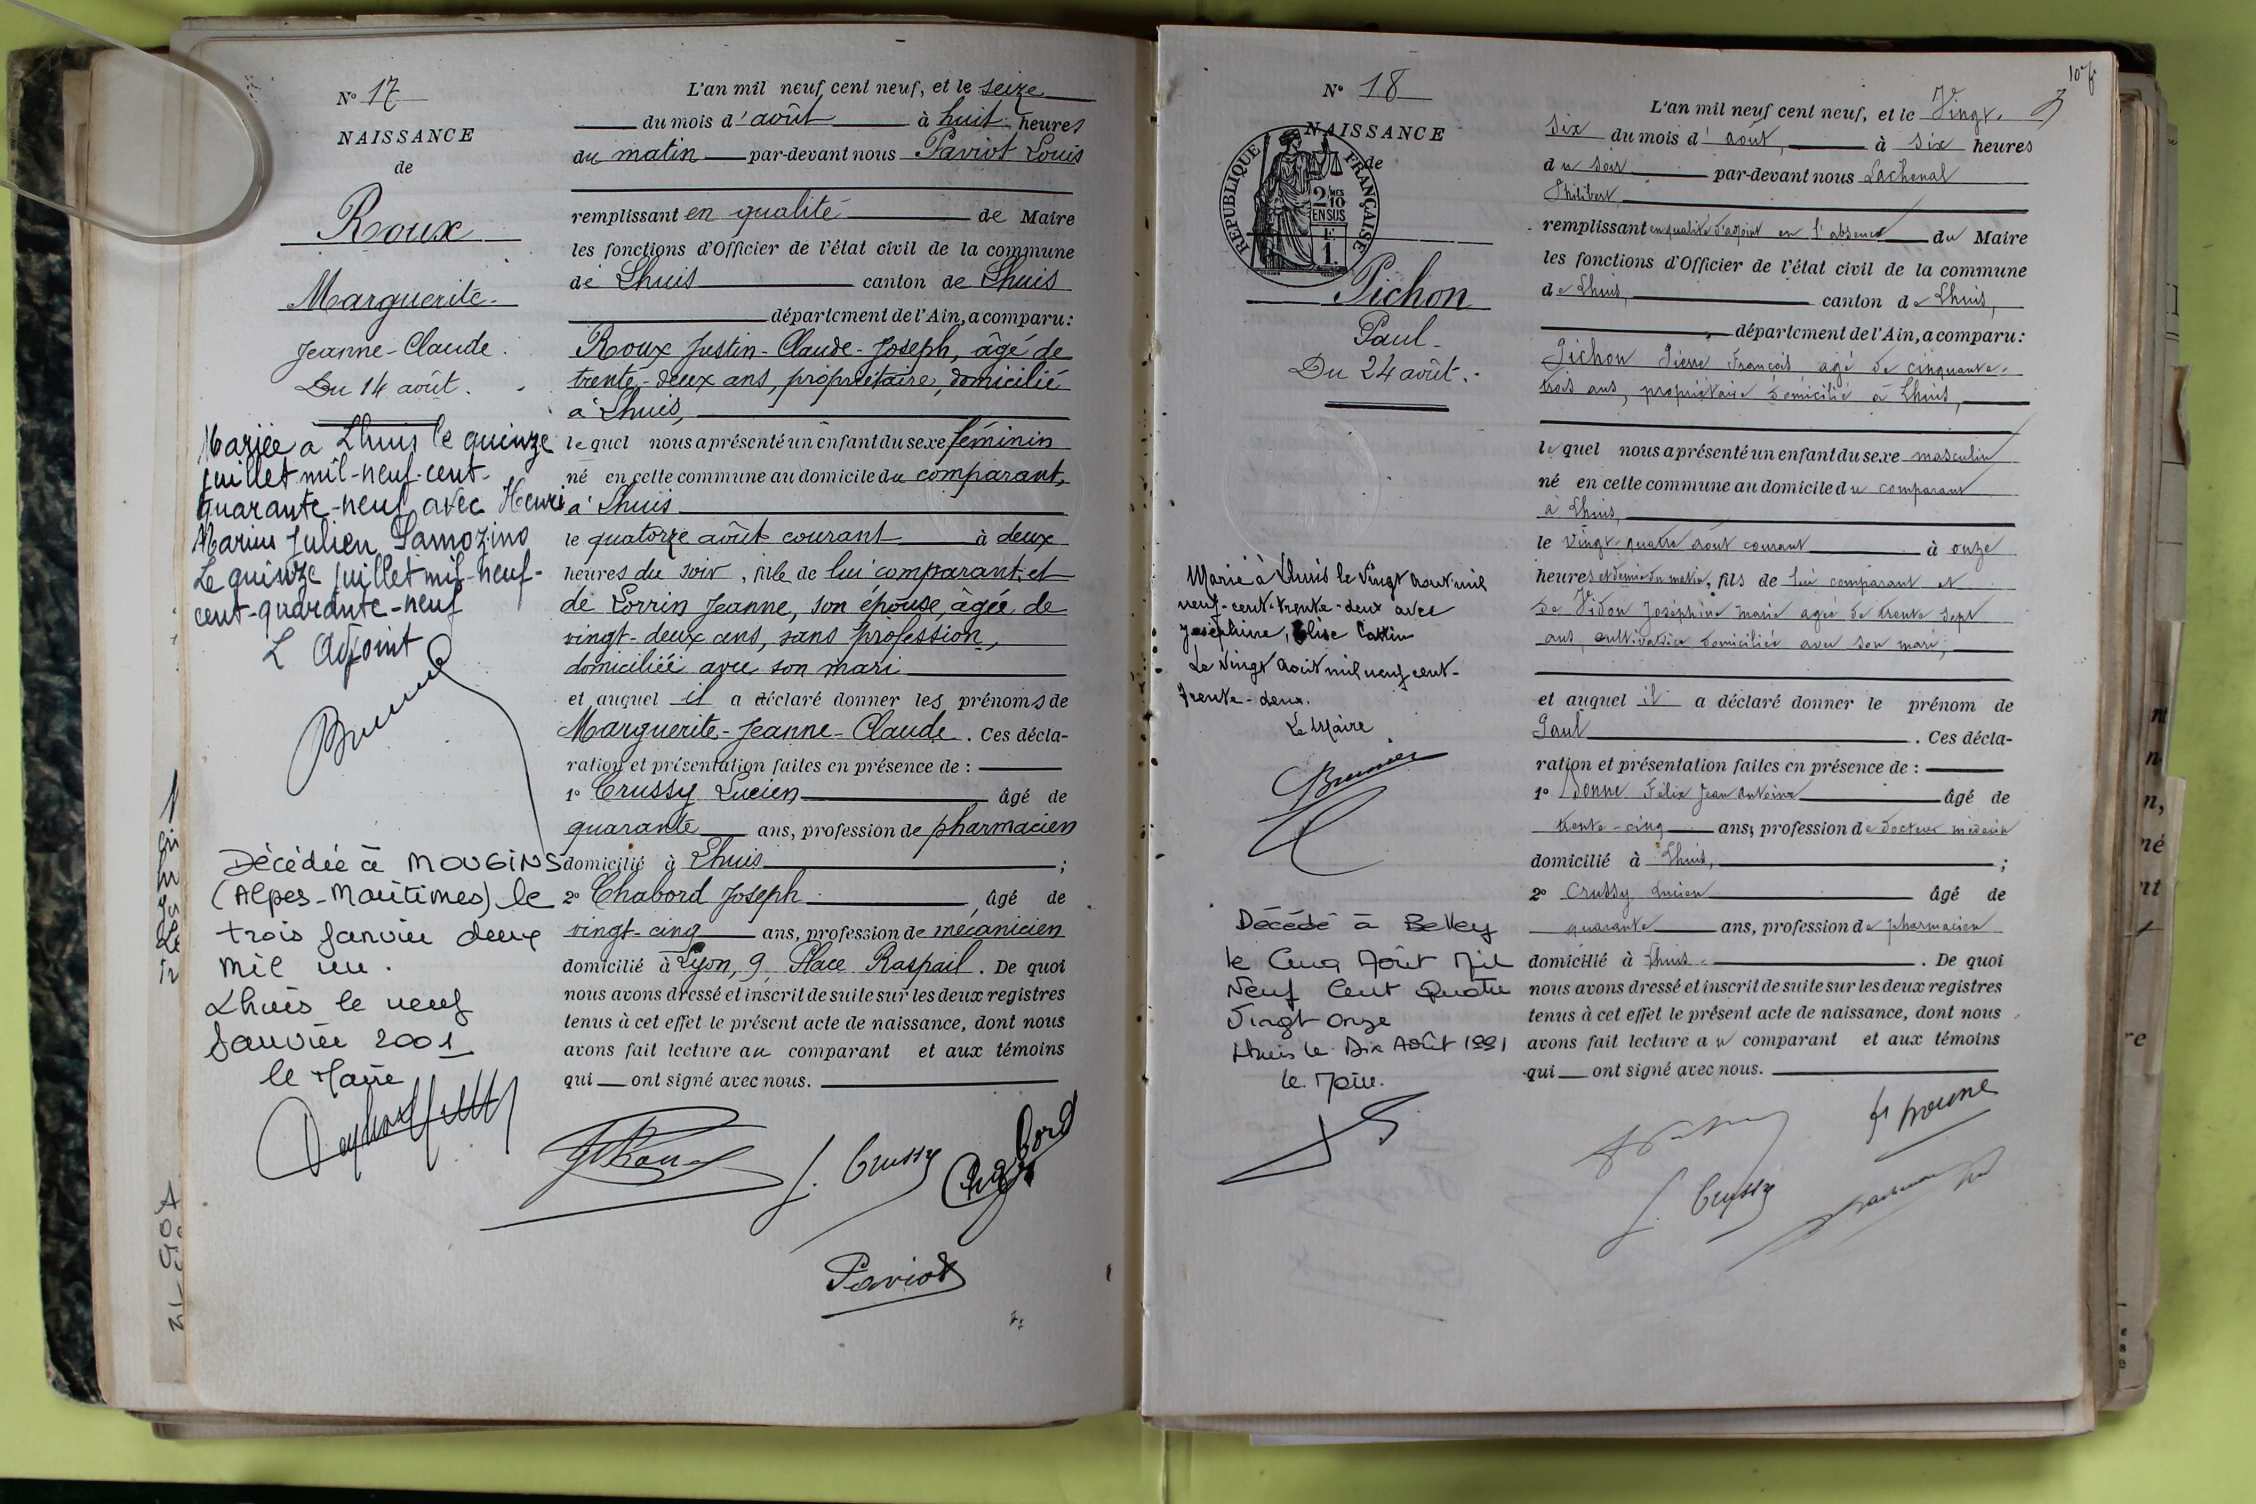 N° 17
NAISSANCE
de
Roux
Marguerite-
Jeanne-Claude.
Du 14 août.
Mariée a Lhuis le quinze
juillet mil-neuf-cent-
quarante-neuf avec Henri
Marius Julien Samozino
Le quinze juillet mil-neuf-
cent-quarante-neuf
L'Adjoint
Décédée à MOUGINS
(Alpes-Maritimes) le
trois Janvier deux
mil un.
Lhuis le neuf
Janvier 2001
le Maire
L'an mil neuf cent neuf, et le seize
du mois d'août à huit heures
du matin par-devant nous Paviot Louis
remplissant en qualité de Maire
les fonctions d'Officier de l'état civil de la commune
de Lhuis canton de Lhuis
département de l'Ain, a comparu:
Roux Justin-Claude-Joseph, âgé de
trente-deux ans, propriétaire, domicilié
à Lhuis,
lequel nous a présenté un enfant du sexe féminin
né en cette commune au domicile du comparant,
à Lhuis
le quatorze août courant à deux
heures du soir, fille de lui comparant et
de Lorrin Jeanne, son épouse, âgée de
vingt-deux ans, sans profession,
domiciliée avec son mari
et auquel il a déclaré donner les prénoms de
Marguerite-Jeanne-Claude. Ces décla-
ration et présentation faites en présence de :
1° Crussy Lucien âgé de
quarante ans, profession de pharmacien
domicilié à Lhuis ;
2° Chabord Joseph âgé de
vingt-cinq ans, profession de mécanicien
domicilié à Lyon, 9 Place Raspail. De quoi
nous avons dressé et inscrit de suite sur les deux registres
tenus à cet effet le présent acte de naissance, dont nous
avons fait lecture au comparant et aux témoins
qui ont signé avec nous.
L. Crussy
Chabord
Paviot
N° 18
NAISSANCE
de
RÉPUBLIQUE FRANÇAISE
2/10 EN SUS
Pichon
Paul
Du 24 août.
Marié à Lhuis le Vingt Août mil
neuf-cent-trente-deux avec
Joséphine, Elise Cattin
Le Vingt Août mil neuf cent-
trente-deux.
Le Maire
Brunier
Décédé à Belley
le Cinq Août Mil
Neuf Cent Quatre
Vingt onze
Lhuis le Dix Août 1991
le Maire.
L'an mil neuf cent neuf, et le Vingt-
six du mois d'août, à six heures
du soir par-devant nous Lachenal
Philibert
remplissant en qualité d'adjoint en l'absence du Maire
les fonctions d'Officier de l'état civil de la commune
de Lhuis, canton de Lhuis,
département de l'Ain, a comparu:
Pichon Pierre François agé de cinquante-
trois ans, propriétaire domicilié à Lhuis,
lequel nous a présenté un enfant du sexe masculin
né en cette commune au domicile du comparant
à Lhuis,
le vingt-quatre août courant à onze
heures et demie du matin, fils de lui comparant et
de Vidon Joséphine Marie agée de trente sept
ans, cultivatrice domiciliée avec son mari,
et auquel il a déclaré donner le prénom de
Paul. Ces décla-
ration et présentation faites en présence de :
1° Bonne Félix Jean Antoine âgé de
trente-cinq ans, profession de docteur médecin
domicilié à Lhuis, ;
2° Crussy Lucien âgé de
quarante ans, profession de pharmacien
domicilié à Lhuis. De quoi
nous avons dressé et inscrit de suite sur les deux registres
tenus à cet effet le présent acte de naissance, dont nous
avons fait lecture au comparant et aux témoins
qui ont signé avec nous.
L. Crussy